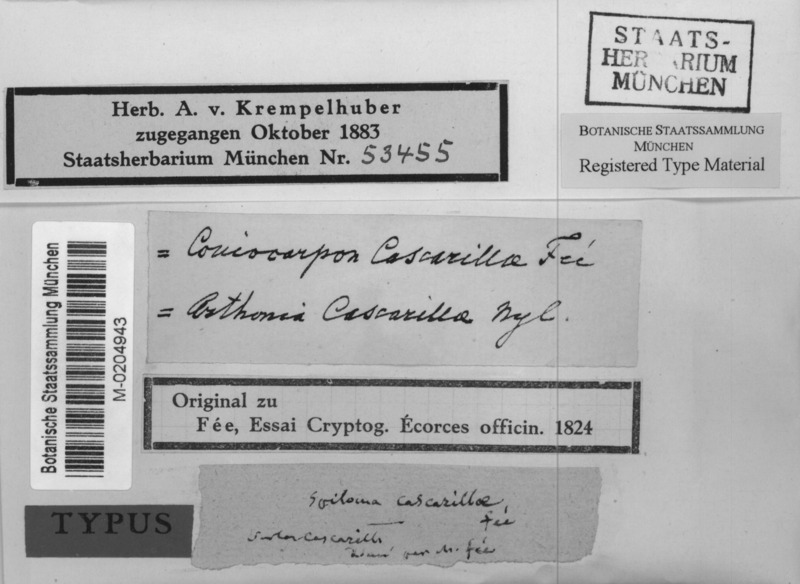 STAATS-
HERBARIUM
MÜNCHEN
Herb. A. v. Krempelhuber
zugegangen Oktober 1883
Staatsherbarium München Nr. 53455
BOTANISCHE STAATSSAMMLUNG
MÜNCHEN
Registered Type Material
= Coniocarpon Cascarillæ Fée
= Arthonia Cascarillæ Nyl.
Botanische Staatssammlung München
M-0204943
Original zu
Fée, Essai Cryptog. Écorces officin. 1824
TYPUS
Spiloma cascarillæ
Fée
par M. Fée